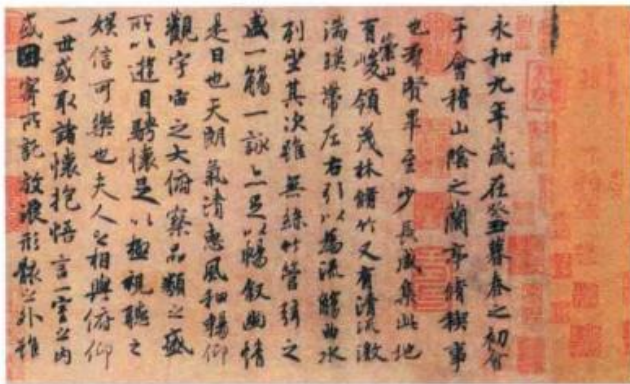 永和九年歲在癸丑暮春之初會
于會稽山陰之蘭亭脩稧事
也群賢畢至少長咸集此地
有崇山峻領茂林脩竹又有清流激
湍暎帶左右引以為流觴曲水
列坐其次雖無絲竹管弦之
盛一觴一詠亦足以暢敘幽情
是日也天朗氣清惠風和暢仰
觀宇宙之大俯察品類之盛
所以遊目騁懷足以極視聽之
娛信可樂也夫人之相與俯仰
一世或取諸懷抱悟言一室之內
或因寄所託放浪形骸之外雖